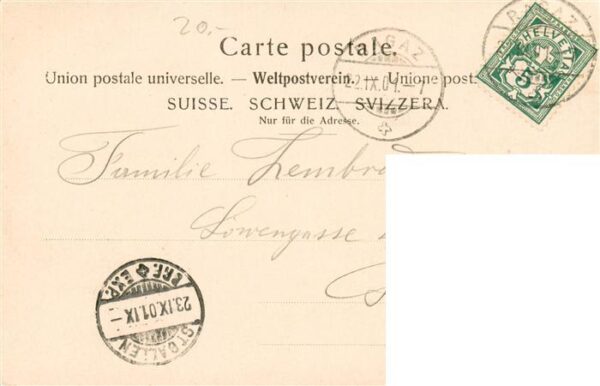 20.-
Carte postale.
Union postale universelle. — Weltpostverein. — Unione post.
SUISSE. SCHWEIZ. SVIZZERA.
Nur für die Adresse.
RAGAZ
22.IX.01.-
RAGAZ
HELVETIA
5
Familie
Löwengasse
BRF. EXP.
23.IX.01.IX-
ST. GALLEN